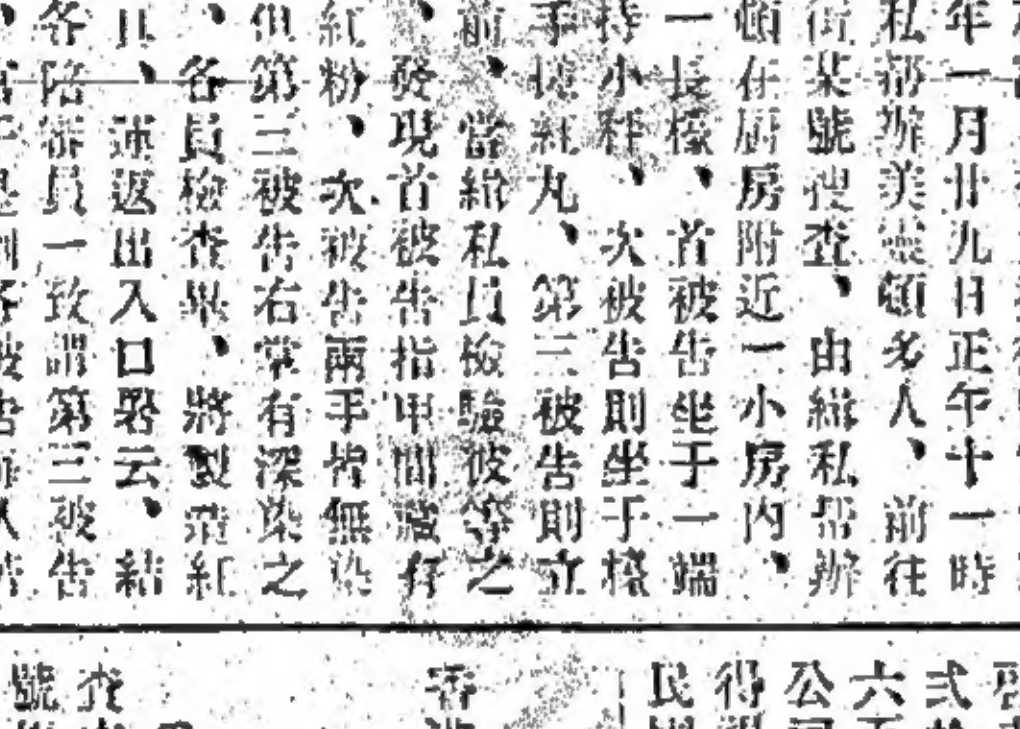 年一月廿九日正午十一時
私帮辦美頓多人、前往
街某號搜查、由緝私帮辦
頓在厨房附近一小房內、
一長檯、首被告坐于一端
持小秤、次被告則坐于檯
手搓紅丸、第三被告則立
前、當緝私員檢驗彼等之
、發現首被告指甲間藏有
紅粉、次被告兩手皆無染
但第三被告右掌有深染之
、各員檢查畢、將製紅
且、速返出入口署云、結
各陪審員一致謂第三被告
式
六
公
得
民
香
查
號